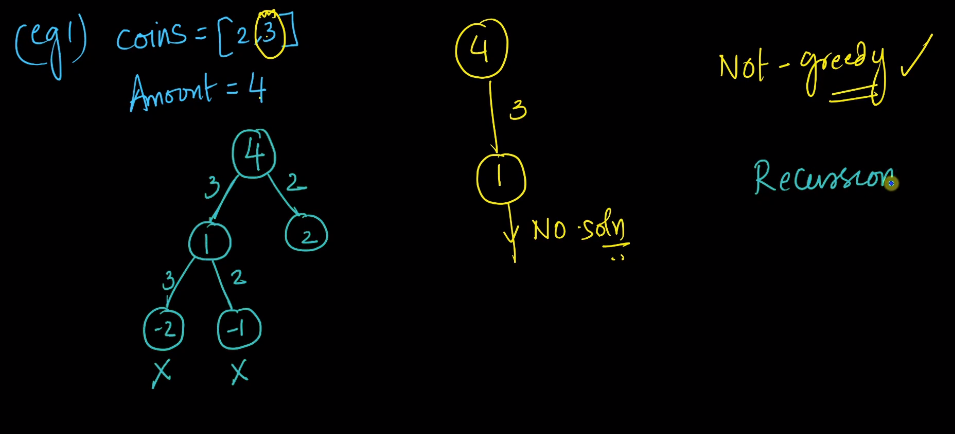 (eg1) coins = [2,3]
Amount = 4
4
3 2
1 2
3 2
-2 -1
X X
4
3
1
No soln
Not-greedy ✓
Recursion